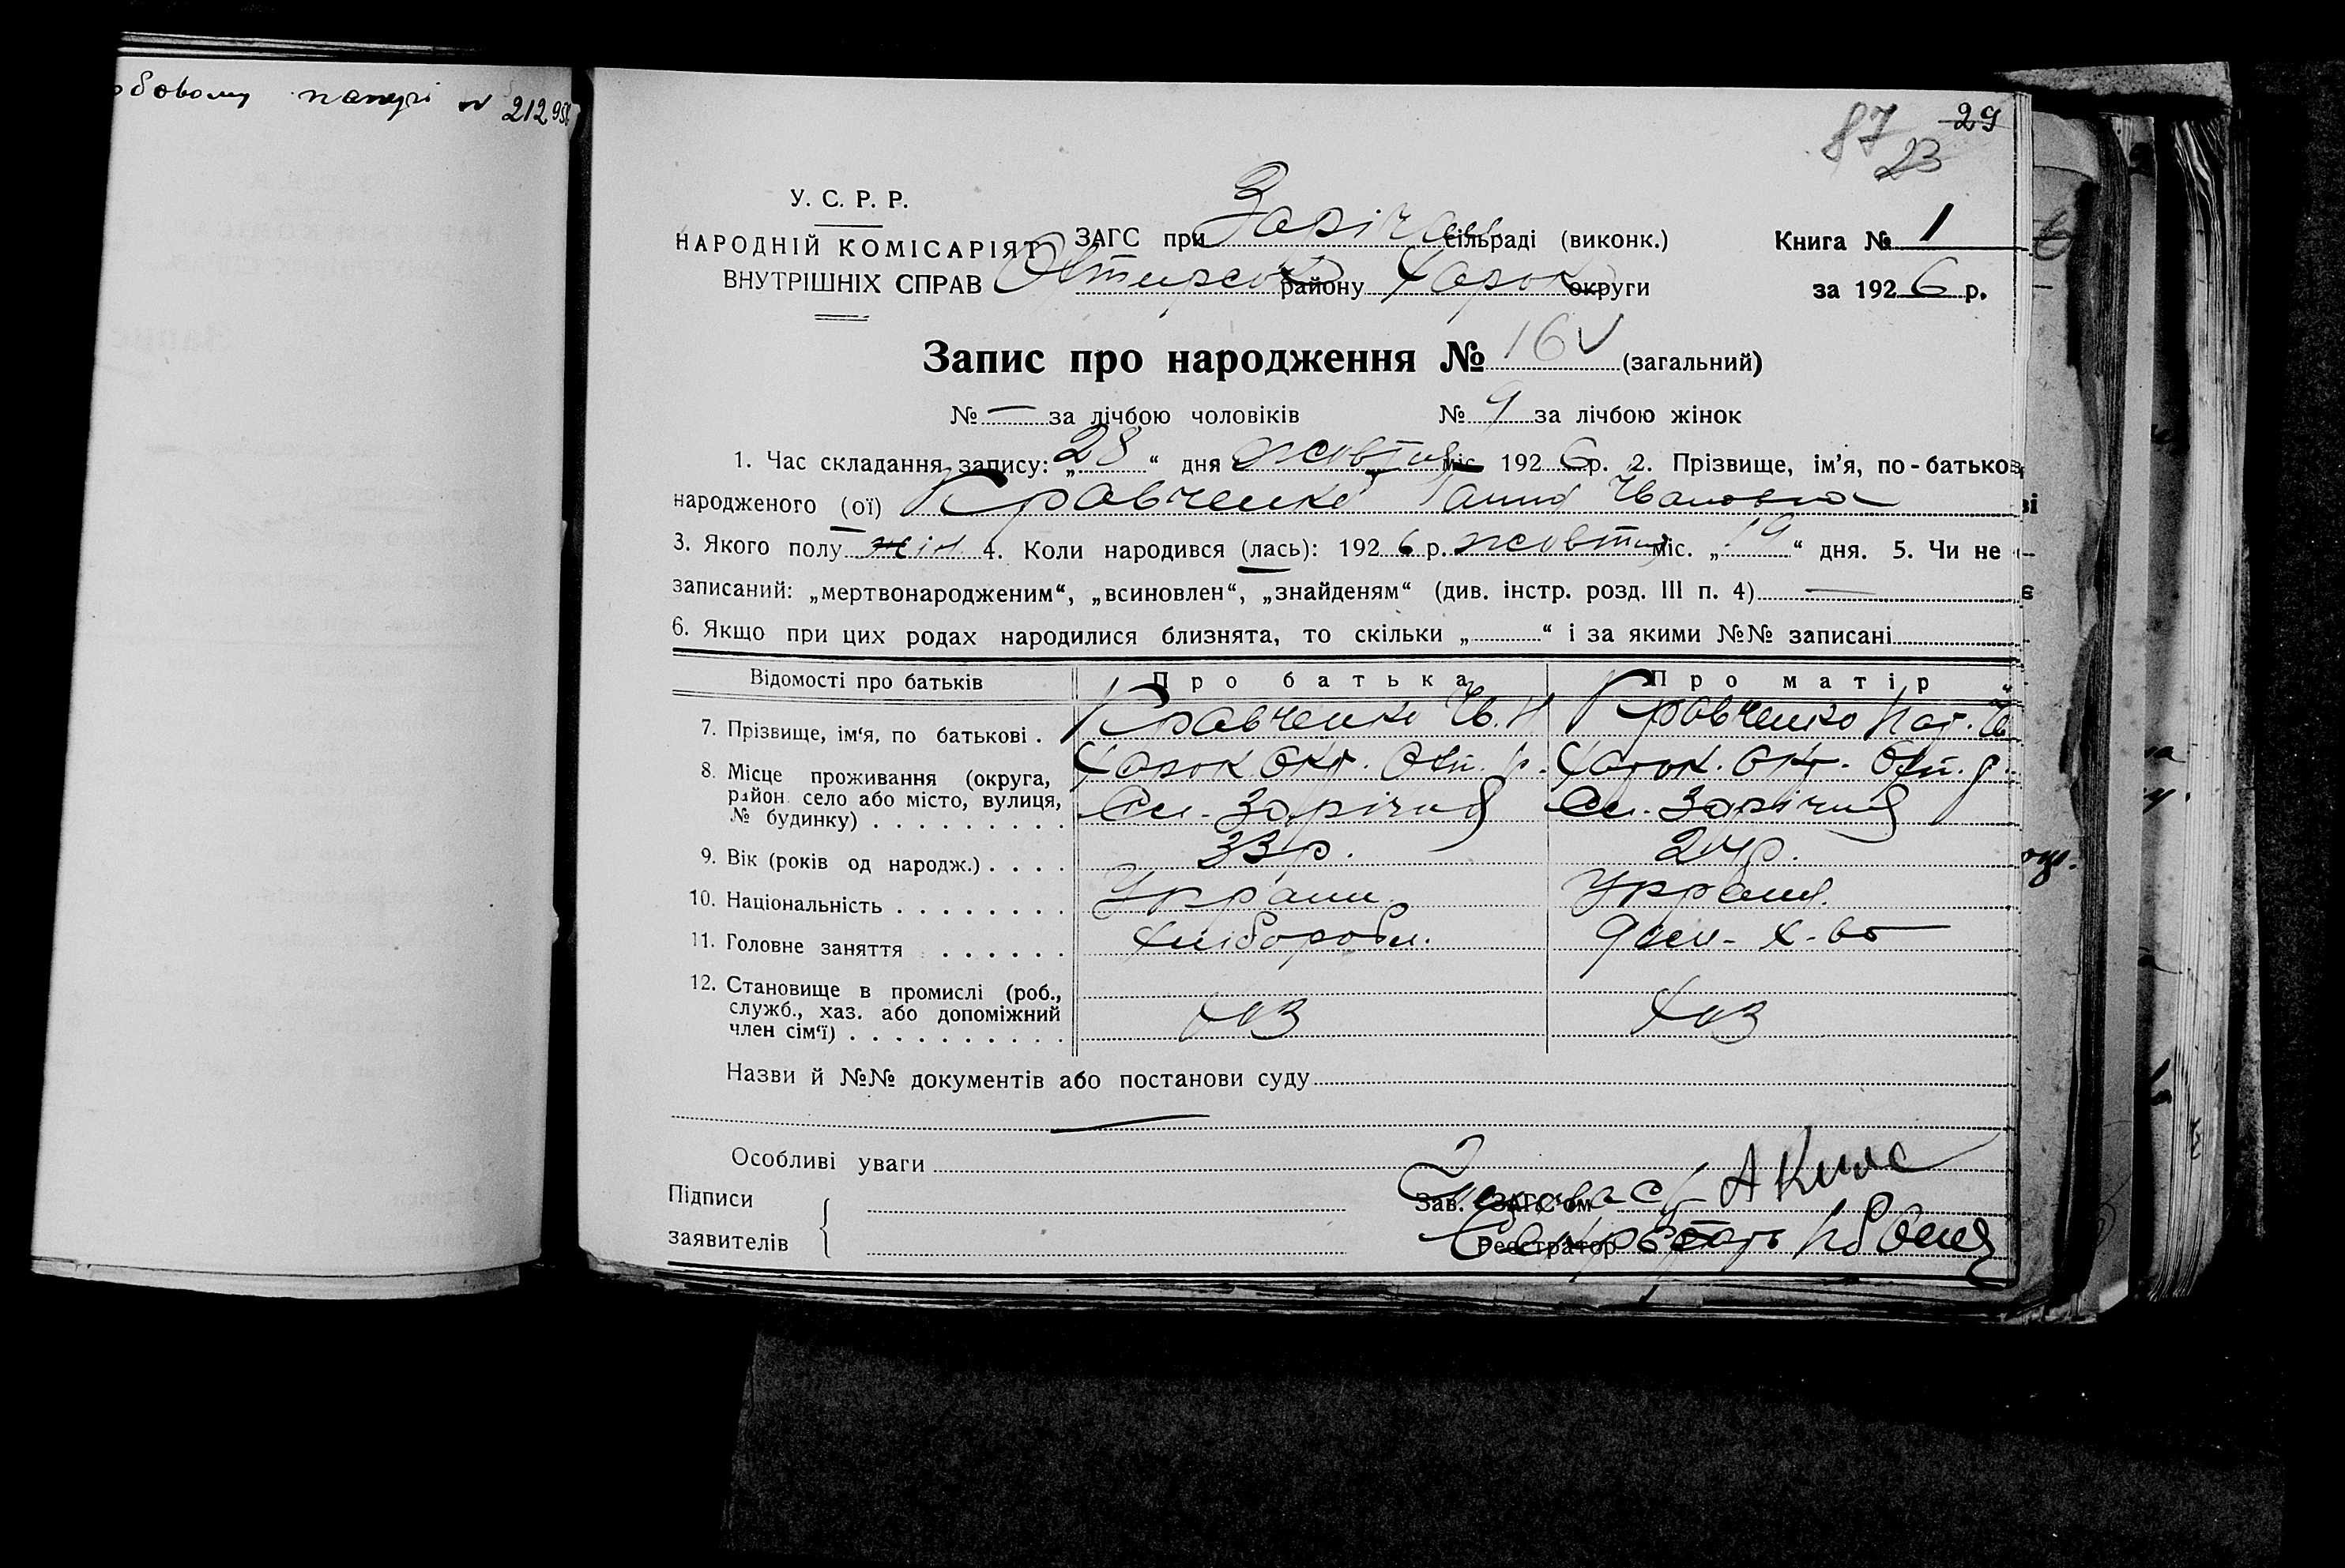 обовому папері № 212956
87 29
23
У. С. Р. Р.
НАРОДНІЙ КОМІСАРІЯТ
ВНУТРІШНІХ СПРАВ
ЗАГС при Зарічан сільраді (виконк.)
Охтирськ району Харьк округи
Книга № 1
за 1926 р.
Запис про народження № 16 (загальний)
№ — за лічбою чоловіків № 9 за лічбою жінок
1. Час складання запису: „28“ дня жовтня міс 1926 р. 2. Прізвище, ім’я, по-батькові
народженого (ої) Кравченко Ганна Ивановна
3. Якого полу жін 4. Коли народився (лась): 1926 р. жовтня міс. „19“ дня. 5. Чи не є
записаний: „мертвонародженим“, „всиновлен“, „знайденям“ (див. інстр. розд. III п. 4) —
6. Якщо при цих родах народилися близнята, то скільки „ “ і за якими №№ записані
Відомості про батьків Про батька Про матір
7. Прізвище, ім‘я, по батькові . Кравченко Ив. Кравченко
8. Місце проживання (округа, Харьк. окр. Охт. р. Харьк. окр. Охт. р.
район село або місто, вулиця, Сл. Зарічня Сл. Зарічня
№ будинку)
9. Вік (років од народж.) 33 р. 24 р.
10. Національність Украин Украин.
11. Головне заняття Хлібороб. Дом- х-во
12. Становище в промислі (роб.,
служб., хаз. або допоміжний
член сім‘ї) хоз хоз
Назви й №№ документів або постанови суду
Особливі уваги
Підписи
заявителів
Зав. ЗАГС‘ом
Реєстратор Секретарь